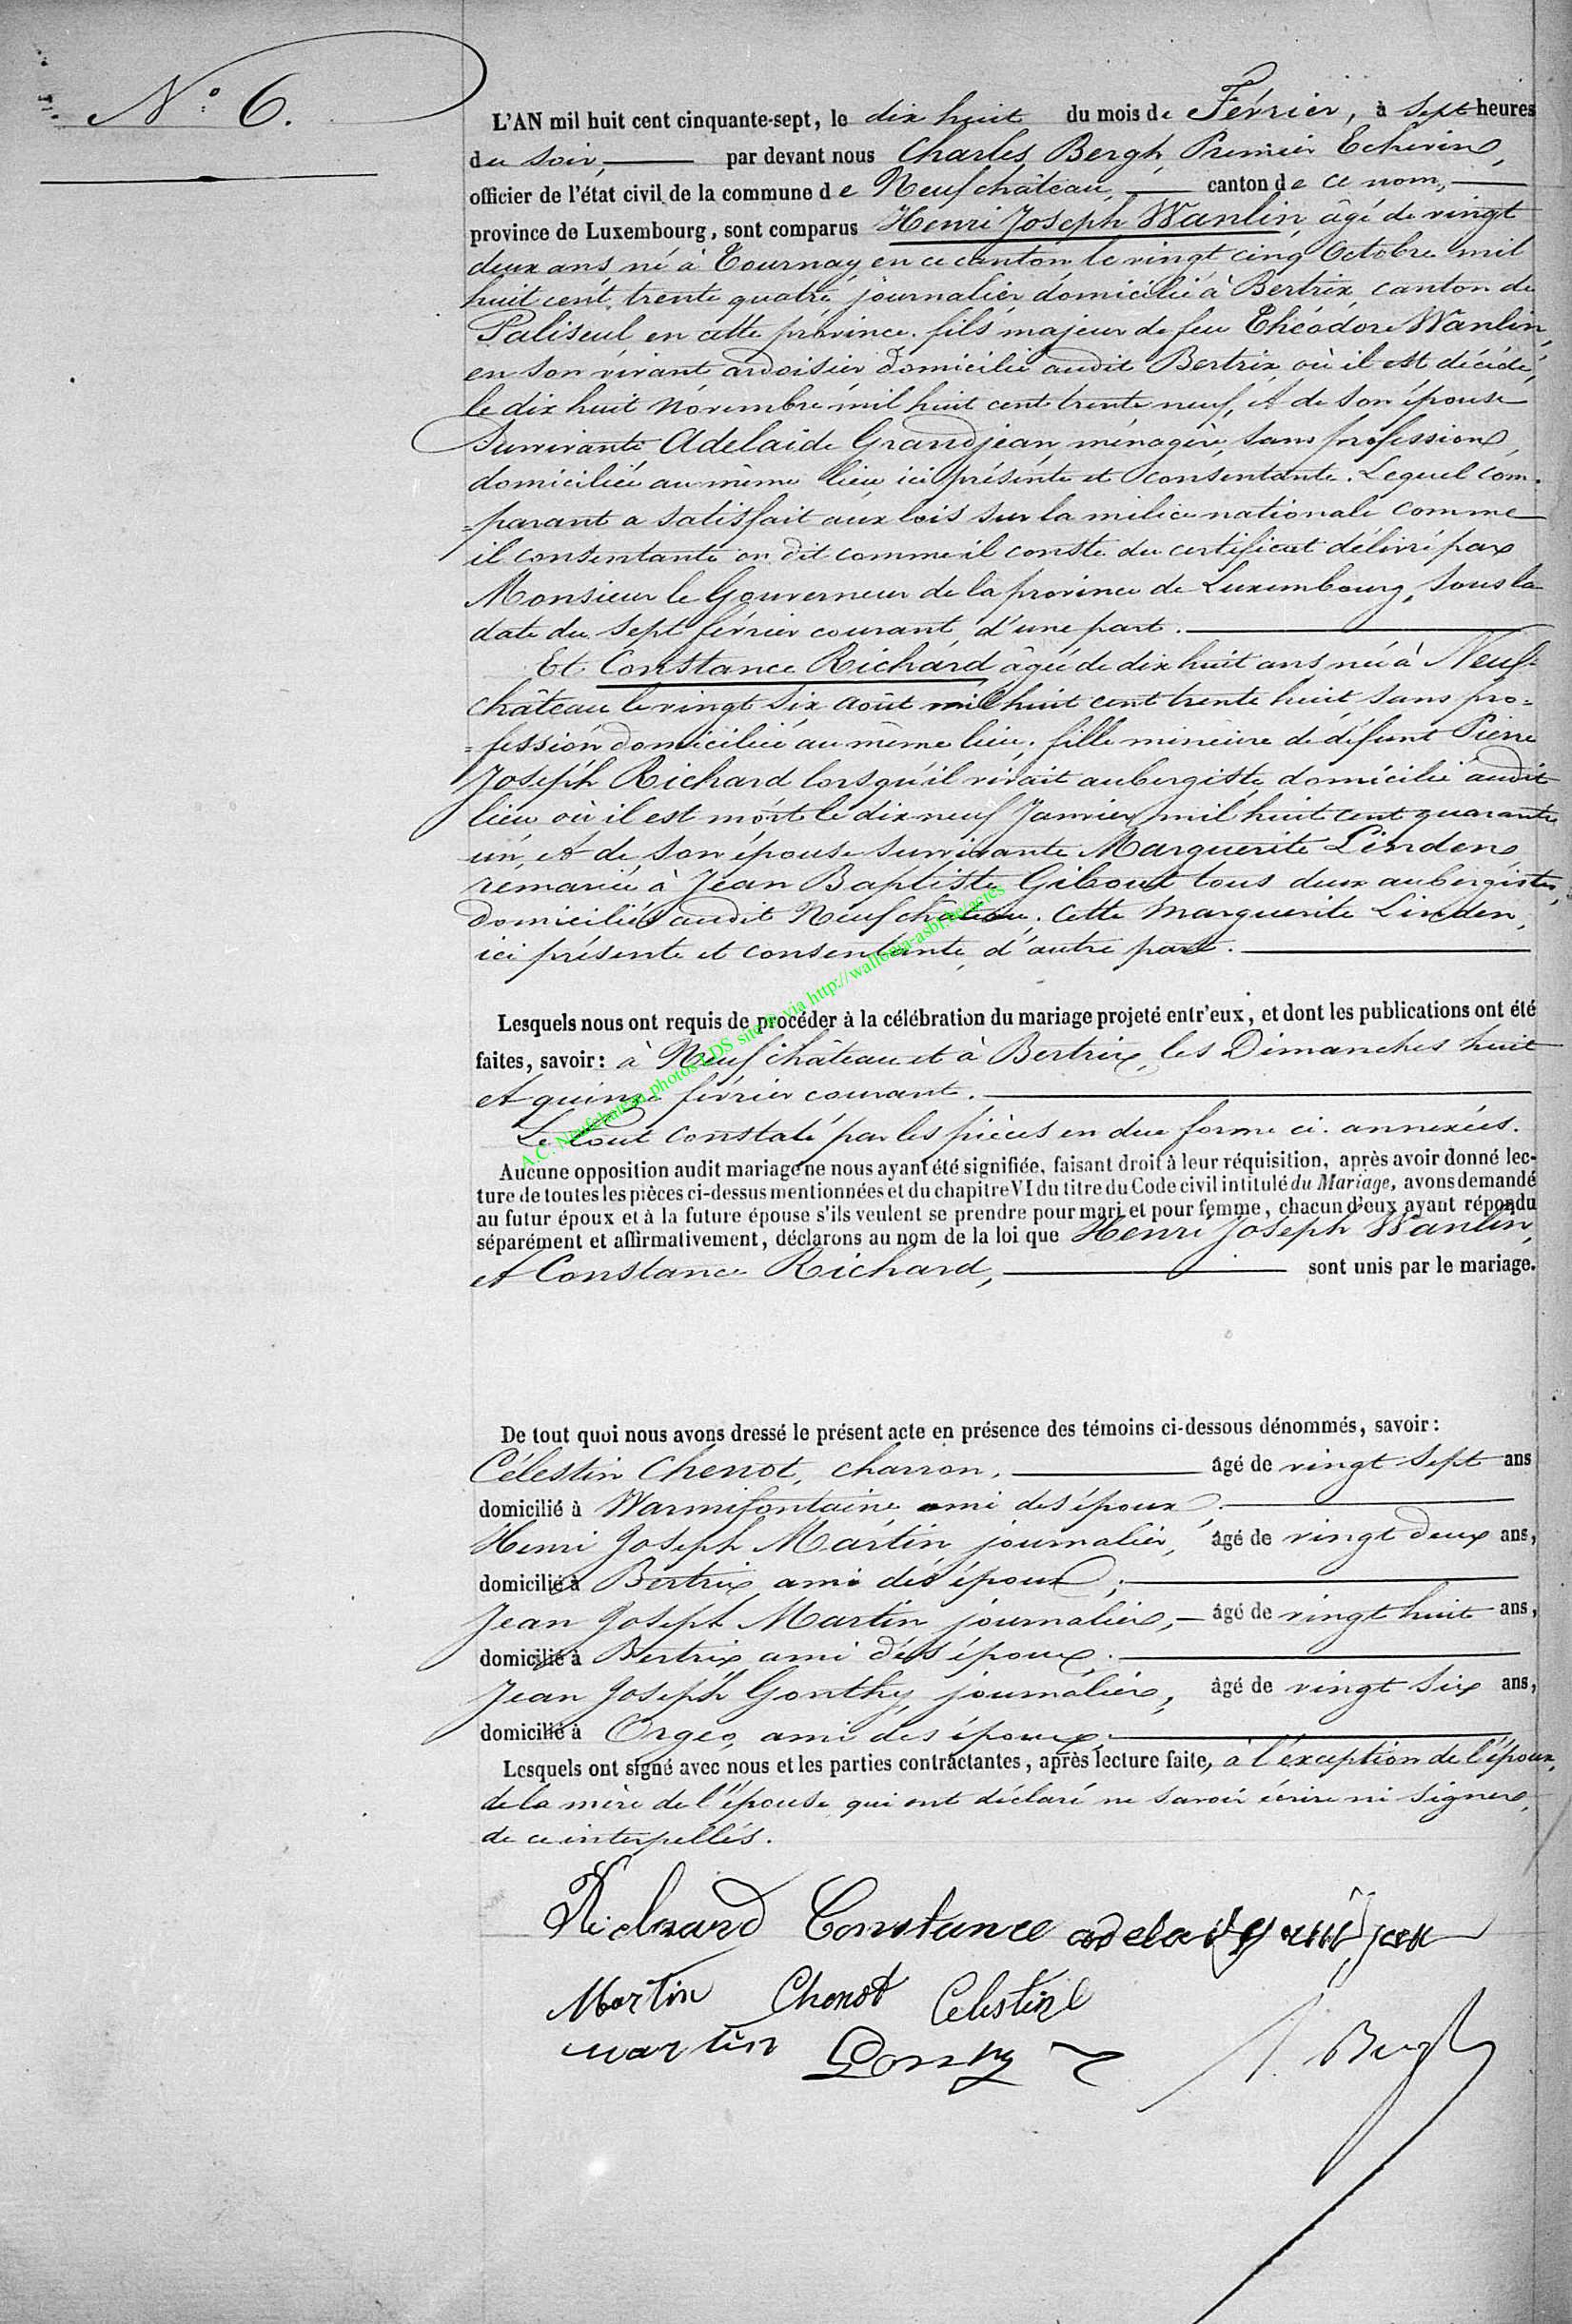 N.° 6.
L'AN mil huit cent cinquante-sept, le dix huit du mois de Février, à sept heures
du soir, par devant nous Charles Bergh, Premier Echevin,
officier de l'état civil de la commune de Neufchâteau, canton de ce nom,
province de Luxembourg, sont comparus Henri Joseph Wanlin, âgé de vingt
deux ans, né à Tournay, en ce canton le vingt cinq Octobre mil
huit cent trente quatre, journalier domicilié à Bertrix, canton de
Paliseul en cette province. fils majeur de feu Théodore Wanlin,
en son vivant ardoisier domicilié audit Bertrix où il est décédé,
le dix huit Novembre mil huit cent trente neuf, et de son épouse
Survivante Adelaide Grandjean, ménagère, sans profession,
domiciliée au même lieu, ici présente et consentante. Lequel com-
=parant a satisfait aux lois sur la milice nationale comme
il consentante on dit comme il conste du certificat délivré par
Monsieur le Gouverneur de la province de Luxembourg, sous la
date du sept février courant, d'une part.
Et Constance Richard âgée de dix huit ans née à Neuf-
château le vingt six août mil huit cent trente huit, sans pro=
=fession domiciliée au même lieu, fille mineure de défunt Pierre
Joseph Richard lorsqu'il vivait aubergiste, domicilié audit
lieu où il est mort le dix neuf Janvier mil huit cent quarante
un, et de son épouse survivante Marguerite Linden,
remariée à Jean Baptiste Gibout tous deux aubergistes,
domiciliés audit Neufchâteau. Cette Marguerite Linden,
ici présente et consentante, d'autre part.
A.C. Neufchateau photos LDS site © via http://wallonia-asbl.be/actes
Lesquels nous ont requis de procéder à la célébration du mariage projeté entr'eux, et dont les publications ont été
faites, savoir: à Neufchâteau et à Bertrix, les Dimanches huit
et quinze février courant.
Le tout constaté par les pièces en due forme ci-annexées.
Aucune opposition audit mariage ne nous ayant été signifiée, faisant droit à leur réquisition, après avoir donné lec-
ture de toutes les pièces ci-dessus mentionnées et du chapitre VI du titre du Code civil intitulé du Mariage, avons demandé
au futur époux et à la future épouse s'ils veulent se prendre pour mari et pour femme, chacun d'eux ayant répondu
séparément et affirmativement, déclarons au nom de la loi que Henri Joseph Wanlin,
et Constance Richard, sont unis par le mariage.
De tout quoi nous avons dressé le présent acte en présence des témoins ci-dessous dénommés, savoir:
Célestin Chenot, charron, âgé de vingt sept ans
domicilié à Warmifontaine ami des époux,
Henri Joseph Martin, journalier, âgé de vingt deux ans,
domicilié à Bertrix ami des époux;
Jean Joseph Martin journalier, âgé de vingt huit ans,
domicilié à Bertrix ami des époux.
Jean Joseph Gonthy, journalier, âgé de vingt six ans,
domicilié à Orgeo, ami des époux.
Lesquels ont signé avec nous et les parties contractantes, après lecture faite, à l'exception de l'époux,
de la mère de l'épouse qui ont déclaré ne savoir écrire ni signer,
de ce interpellés.
Richard Constance adelaide grandjean
Martin Chenot Celestin
martin Gonthy C. Bergh